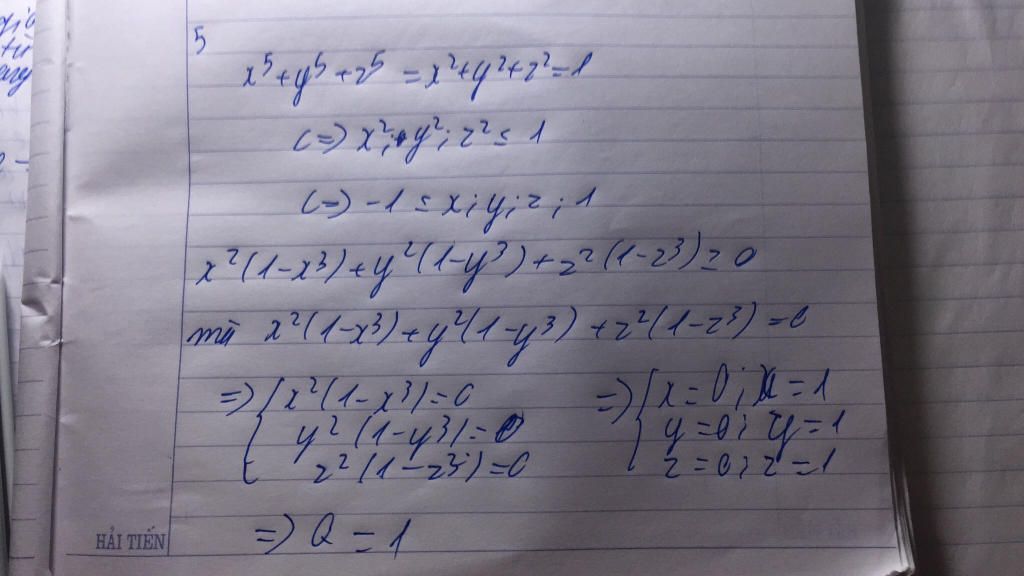 5
x⁵+y⁵+z⁵ = x²+y²+z²=1
(=) x²; y²; z² ≤ 1
(=) -1 ≤ x; y; z ; 1
x²(1-x³)+y²(1-y³)+z²(1-z³) ≥ 0
mà x²(1-x³)+y²(1-y³)+z²(1-z³) = 0
=) { x²(1-x³)=0 =) { x=0; x=1
y²(1-y³)=0 y=0; y=1
z²(1-z³)=0 z=0; z=1
=) Q = 1
HẢI TIẾN